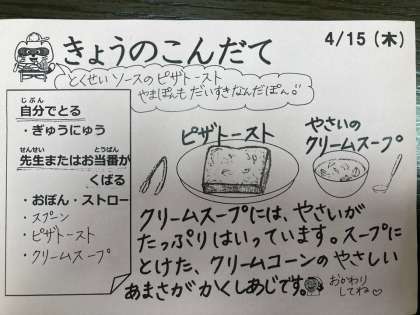 きょうのこんだて
4/15（木）
とくせいソースのピザトースト
やまぽんもだいすきなんだぽん♡
自分でとる
じぶん
・ぎゅうにゅう
先生またはお当番が
せんせい　とうばん
くばる
・おぼん・ストロー
・スプーン
・ピザトースト
・クリームスープ
ピザトースト
やさいの
クリームスープ
クリームスープには、やさいが
たっぷりはいっています。スープに
とけた、クリームコーンのやさしい
あまさがかくしあじです。
おかわり
してね♡